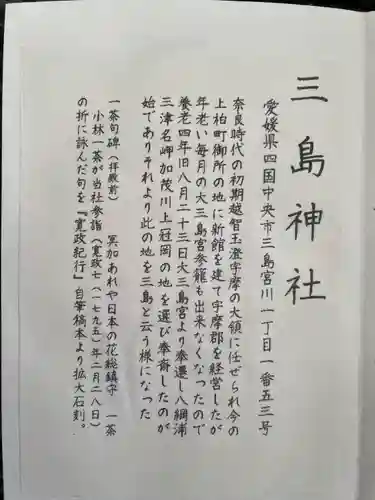 三島神社
愛媛県四国中央市三島宮川一丁目一番五三号
奈良時代の初期越智玉澄宇摩の大領に任ぜられ今の
上柏町御所の地に新館を建て宇摩郡を経営したが
年老い毎月の大三島宮参篭も出来なくなったので
養老四年旧八月二十三日大三島宮より奉遷し八綱浦
三津名岬加茂川上冠岡の地を選び奉斎したのが
始でありそれより此の地を三島と云う様になった
一茶句碑（拝殿前）　冥加あれや日本の花総鎮守　一茶
小林一茶が当社参詣（寛政七（一七九五）年二月二八日）
の折に詠んだ句を『寛政紀行』自筆稿本より拡大石刻。